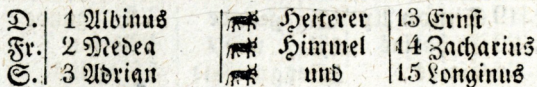 D. 1 Albinus Heiterer 13 Ernst
Fr. 2 Medea Himmel 14 Zacharius
S. 3 Adrian und 15 Longinus